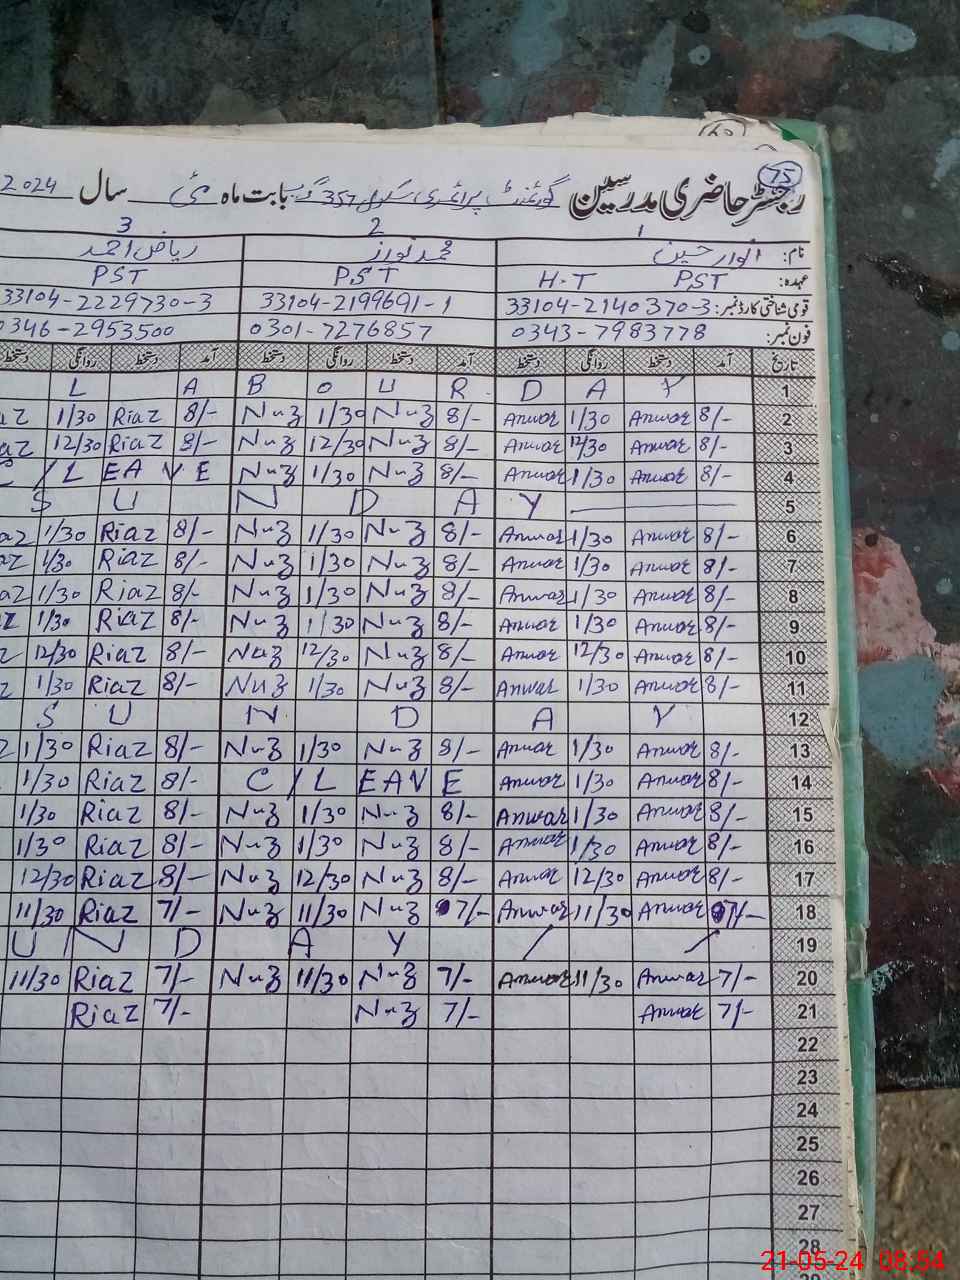 75
رجسٹر حاضری مدرسین گورنمنٹ پرائمری سکول 357 گ ب بابت ماہ مئی سال 2024
1 2 3
نام: انوار حسین محمد نواز ریاض احمد
عہدہ: PST H.T PST PST
قومی شناختی کارڈ نمبر: 33104-2140370-3 33104-2199691-1 33104-2229730-3
فون نمبر: 0343-7983778 0301-7276857 0346-2953500
تاریخ آمد دستخط روانگی دستخط آمد دستخط روانگی دستخط آمد دستخط روانگی دستخط
L A B O U R D A Y 1
1/30 Riaz 8/- Nuz 1/30 Nuz 8/- Anwar 1/30 Anwar 8/- 2
12/30 Riaz 8/- Nuz 12/30 Nuz 8/- Anwar 12/30 Anwar 8/- 3
C/LEAVE Nuz 1/30 Nuz 8/- Anwar 1/30 Anwar 8/- 4
S U N D A Y 5
1/30 Riaz 8/- Nuz 1/30 Nuz 8/- Anwar 1/30 Anwar 8/- 6
1/30 Riaz 8/- Nuz 1/30 Nuz 8/- Anwar 1/30 Anwar 8/- 7
1/30 Riaz 8/- Nuz 1/30 Nuz 8/- Anwar 1/30 Anwar 8/- 8
1/30 Riaz 8/- Nuz 1/30 Nuz 8/- Anwar 1/30 Anwar 8/- 9
12/30 Riaz 8/- Nuz 12/30 Nuz 8/- Anwar 12/30 Anwar 8/- 10
1/30 Riaz 8/- Nuz 1/30 Nuz 8/- Anwar 1/30 Anwar 8/- 11
S U N D A Y 12
1/30 Riaz 8/- Nuz 1/30 Nuz 8/- Anwar 1/30 Anwar 8/- 13
1/30 Riaz 8/- C/LEAVE Anwar 1/30 Anwar 8/- 14
1/30 Riaz 8/- Nuz 1/30 Nuz 8/- Anwar 1/30 Anwar 8/- 15
1/30 Riaz 8/- Nuz 1/30 Nuz 8/- Anwar 1/30 Anwar 8/- 16
12/30 Riaz 8/- Nuz 12/30 Nuz 8/- Anwar 12/30 Anwar 8/- 17
11/30 Riaz 7/- Nuz 11/30 Nuz 7/- Anwar 11/30 Anwar 7/- 18
U N D A Y 19
11/30 Riaz 7/- Nuz 11/30 Nuz 7/- Anwar 11/30 Anwar 7/- 20
Riaz 7/- Nuz 7/- Anwar 7/- 21
22
23
24
25
26
27
28
21-05-24 08:54